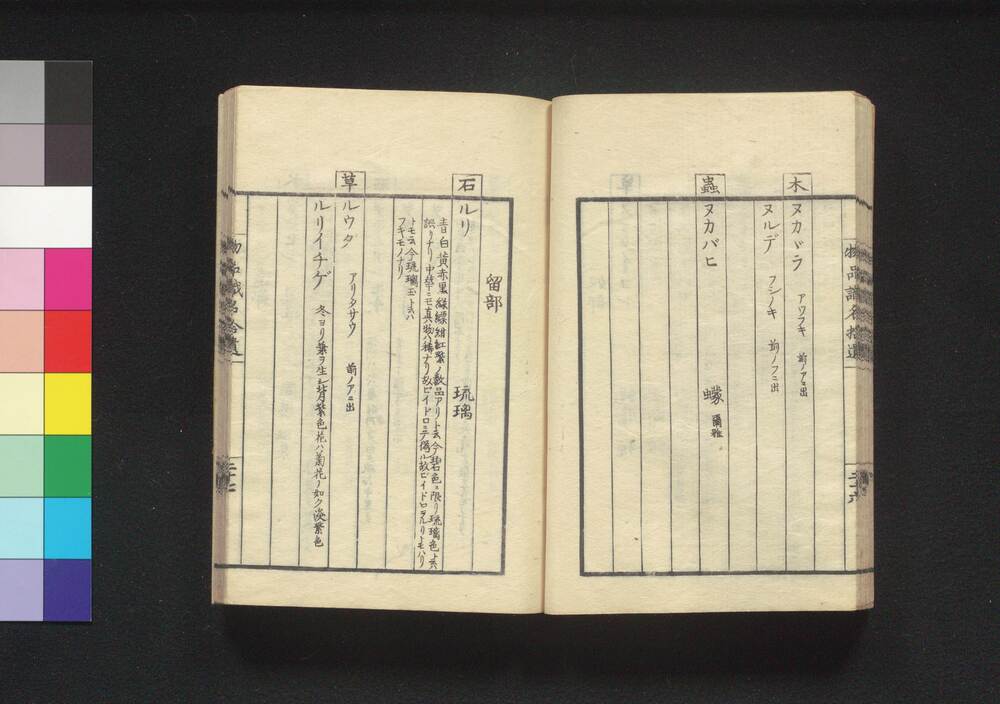 物品識名拾遺
木 ヌカヅラ アワフキ 前ノアニ出
ヌルデ フシノキ 前ノフニ出
蟲 ヌカバヒ 蠓 爾雅
留部
石 ルリ 琉璃
青白黄赤黒緑縹紺紅紫ノ数品アリト云今紺色ニ限リ琉璃色ト云ハ
誤リナリ中華ニモ真物ハ稀ナリ故ビイドロニテ偽ル故ビイドロヲルリトモハリ
トモ云今琉璃玉ト云ハ
フキモノナリ
草 ルウダ アリタサウ 前ノアニ出
ルリイチゲ 冬ヨリ葉ヲ生ジ 紫色花ハ菊花ノ如ク淡紫色
物品識名拾遺